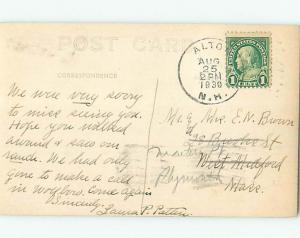 POST CARD
CORRESPONDENCE
ALTON
AUG
25
2 PM
1930
N.H.
UNITED STATES POSTAGE
1
We were very sorry
to miss seeing you.
Hope you walked
around & saw our
ranch. We had only
gone to make a call
in Wolfboro. Come again
Sincerely,
Laura P. Patten
Mr & Mrs. E. N. Brown
St
West Medford
Mass.
Plymouth